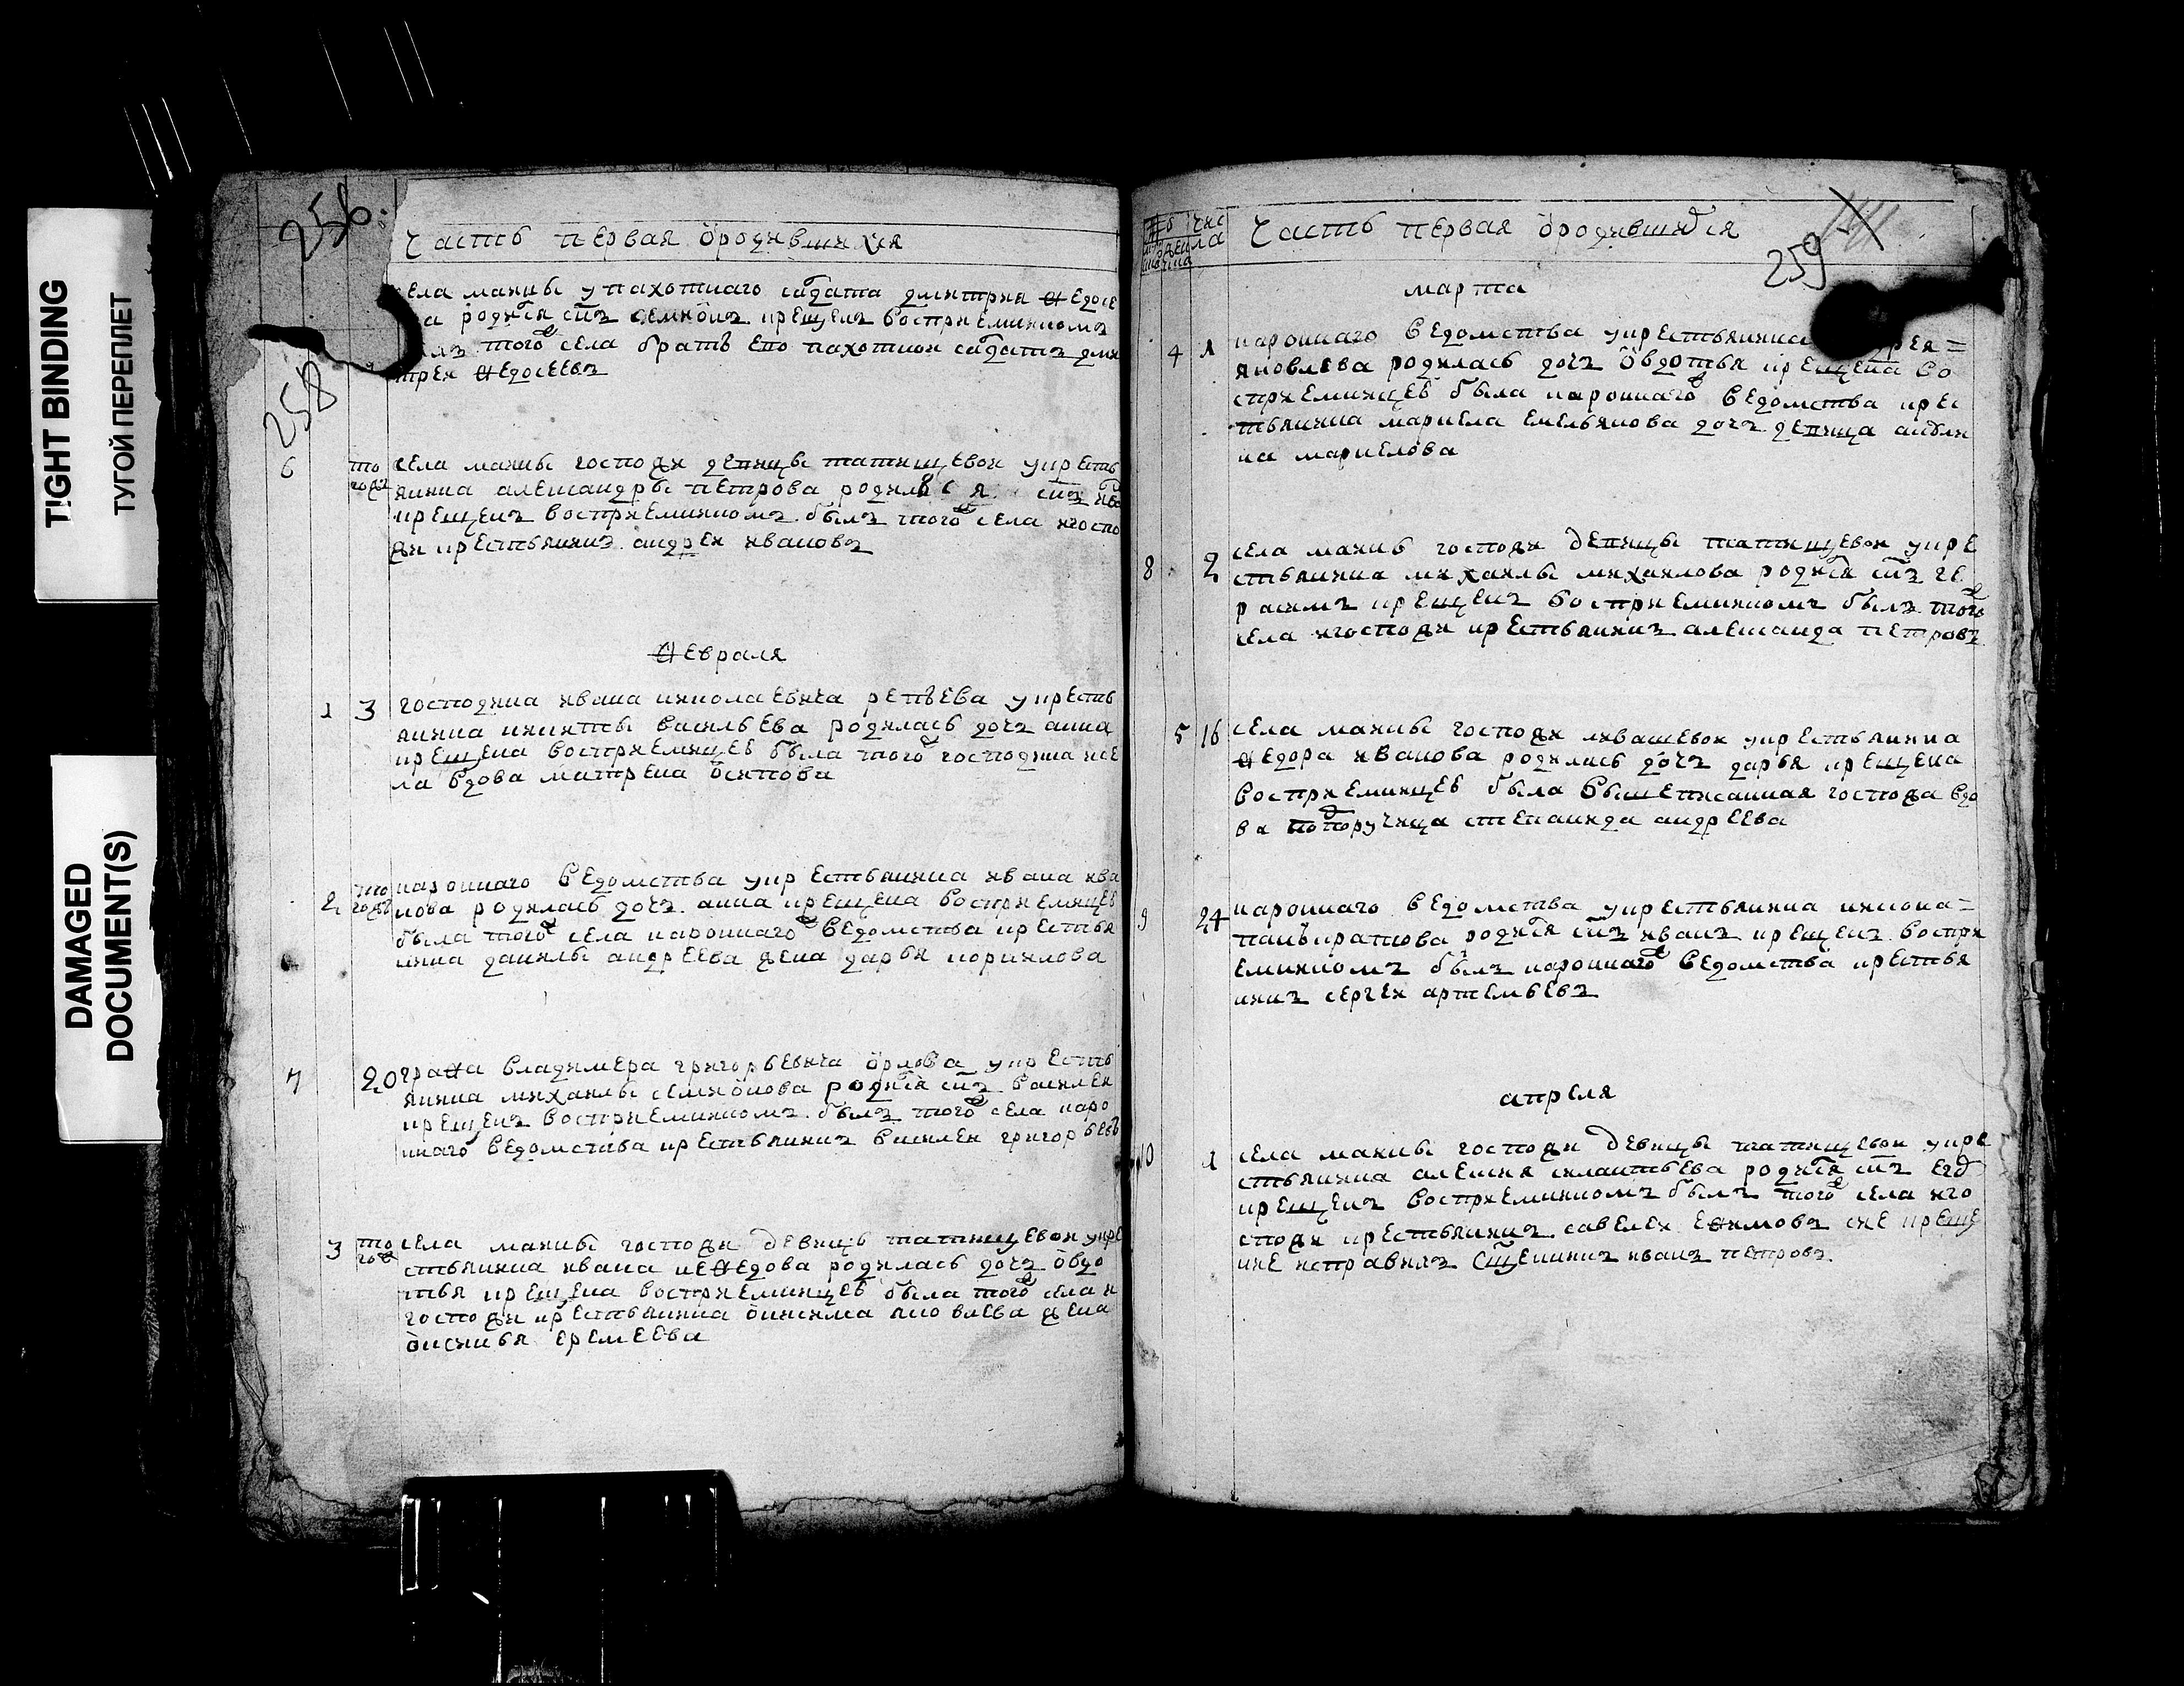 TIGHT BINDING
ТУГОЙ ПЕРЕПЛЕТ
DAMAGED
DOCUMENT(S)
256.
258
часть первая ѡродившихся
села маины у пахотнаго салдата дмитрия ѳедосе
ва родися снъ семиѡнъ крещенъ восприемником
былъ того же села братъ ево пахотнои салдатъ дми
треи ѳедосеевъ
6 того ж села маины госпожи девицы татищевои у кресть
янина александры петрова родился снъ ива
крещенъ восприемникомъ былъ того же села и госпо
жи крестьянинъ андреи ивановъ
ѳевраля
1 3 господина ивана николаевича репьева у кресть
янина никиты васильева родилась дочь анна
крещена восприемницеи была того же господина и се
ла вдова матрена ѡсипова
2 того ж каронного ведомства у крестьянина ивана ива
нова родилась дочь анна крещена восприемницеи
была того же села каронного ведомства крестья
нина данилы андреева жена дарья корнилова
7 20 граѳа владимера григорьевича ѡрлова у кресть
янина михаилы семиѡнова родися снъ василеи
крещенъ восприемникомъ былъ того же села каро
нного ведомства крестьянинъ василеи григорьевъ
3 того ж села маины госпожи девицы татищевои у кре
стьянина ивана неѳедова родилась дочь ѡвдо
тья крещена восприемницеи была того же села и
госпожи крестьянина ѡнисима яковлева жена
ѡксинья еремеева
числа
часть первая ѡродившихся
259
марта
4 1 каронного ведомства у крестьянина
яковлева родилась дочь ѡвдотья крещена во
сприемницеи была каронного ведомства крес
тьянина маркела емельянова дочь девица акули
на маркелова
8 2 села маины госпожи девицы татищевои у кре
стьянина михаилы михаилова родися снъ ге
расимъ крещенъ восприемникомъ былъ того же
села и госпожи крестьянинъ александра петровъ
5 16 села маины госпожи ивашевои у крестьянина
ѳедора иванова родилась дочь дарья крещена
восприемницеи была вышеписанная госпожа вдо
ва подпорутчица степанида андреева
9 24 каронного ведомства у крестьянина никона=
панькратова родися снъ иванъ крещенъ воспри
емникомъ былъ каронного ведомства крестья
нинъ сергеи артемьевъ
апреля
10 1 села маины госпожи девицы татищевои у кре
стьянина алексея силантьева родися снъ егор
крещенъ восприемникомъ былъ того же села и го
спожи крестьянинъ савелеи еѳимовъ сие креще
ние исправилъ сщенникъ иванъ петровъ